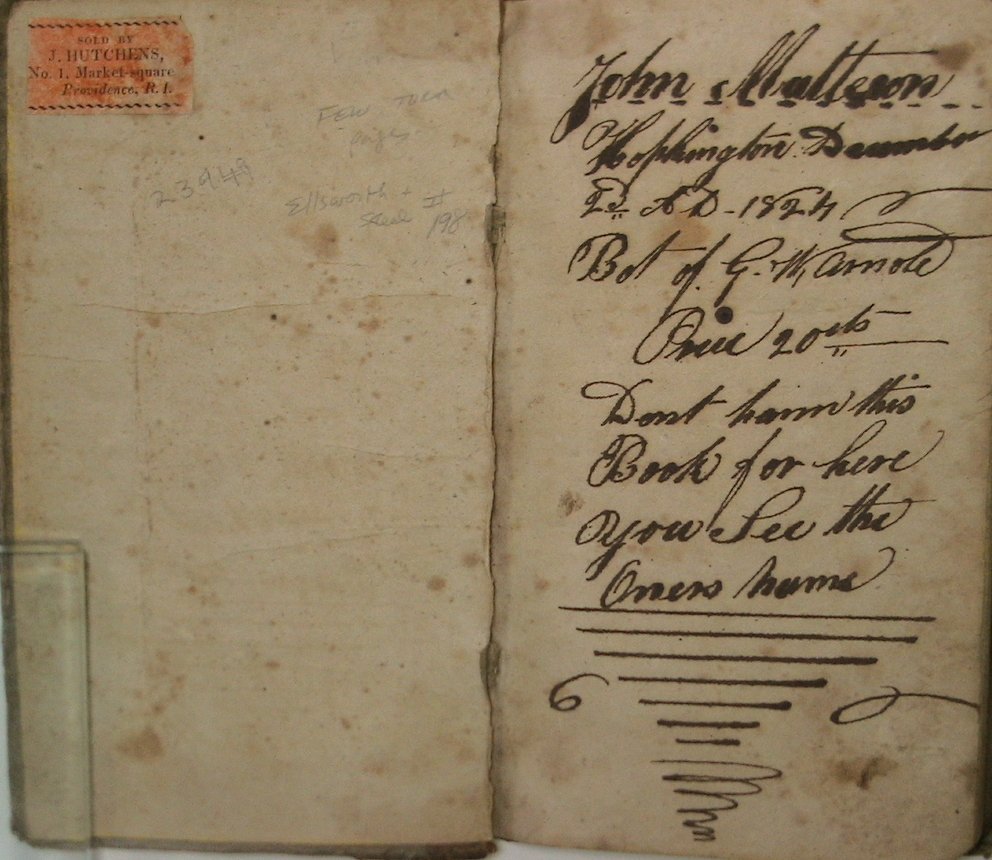 SOLD BY
J. HUTCHENS,
No. 1, Market-square
Providence, R. I.
Few torn
pages
Ellsworth +
II
198
John Matteson
Hopkington December
2d AD - 1824
Bot of G. W. Arnold
Price 20cts
Dont harm this
Book for here
you See the
Oners name